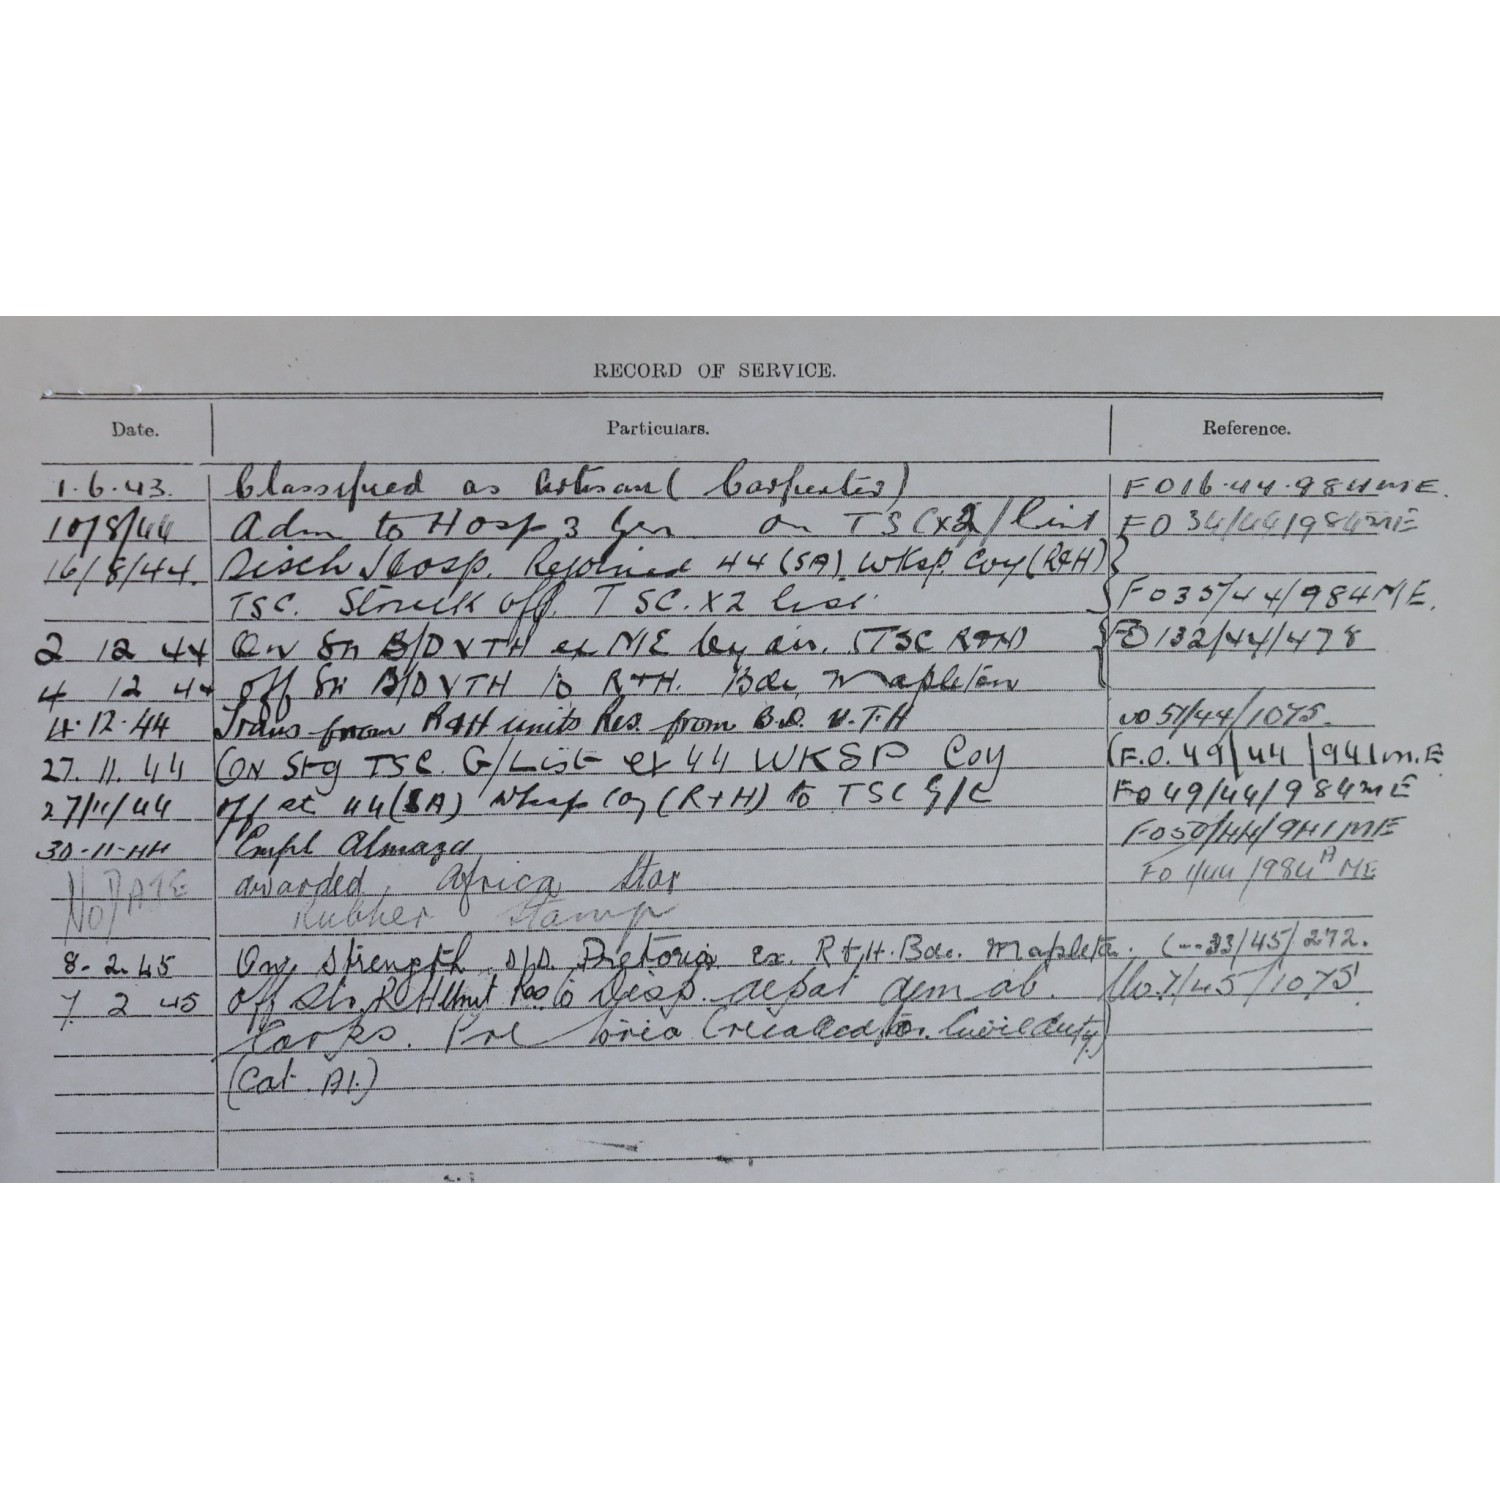 RECORD OF SERVICE.
Date. Particulars. Reference.
1.6.43. Classified as Artisan (Carpenter) FO 16.44.984ME.
10/8/44 Adm to Hosp 3 Gen on TSC X2 / list FO 34/44/984ME
16/8/44. Disch Hosp. Rejoined 44 (SA). WKsp. Coy (R+H)
TSC. Struck off TSC. X2 list. FO35/44/984M/E.
2 12 44 On Sn B/D VTH ex M/E by air. (TSC R+H) FO 132/44/478
4 12 44 Off Sn B/D VTH to R+H. Bde, Mapleton
4.12.44 Trans from R&H units Res. from B.D. V.T.H 51/44/1075.
27.11.44 On Stg TSC. G/List ex 44 WKSP Coy (F.O. 49/44/941M.E
27/11/44 Off st 44 (SA) Wksp Coy (R+H) to TSC G/L FO 49/44/984ME
30-11-44 Empl Almaza FO50/44/941ME
No DATE awarded, Africa Star Fo 1/44/984 A ME
Rubber Stamp
8-2-45 On Strength D/D. Pretoria ex. R+H. Bde. Mapleton. (--33/45/272.
7 2 45 Off Str. R H Unit Res to Disp. depat dem ab. 7/45/1075
Pre toria (recalled for Civil duty)
(Cat. A1.)